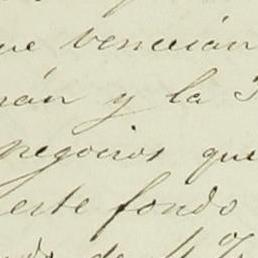 que vencián
rán y la
negocios que
este fondo
de 4%